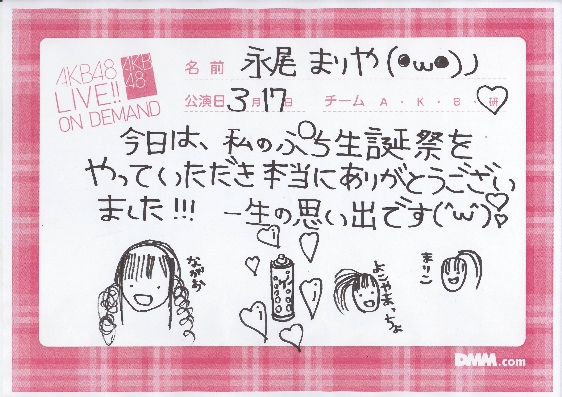 AKB48
LIVE!!
ON DEMAND
AKB
48
名前 永尾 まりや (●ω●)ノ
公演日 3月17日 チーム A・K・B・研
今日は、私のぷち生誕祭を
やっていただき本当にありがとうござい
ました!!! 一生の思い出です(^ω^)
ながお
よこやまっちょ
まりこ
DMM.com